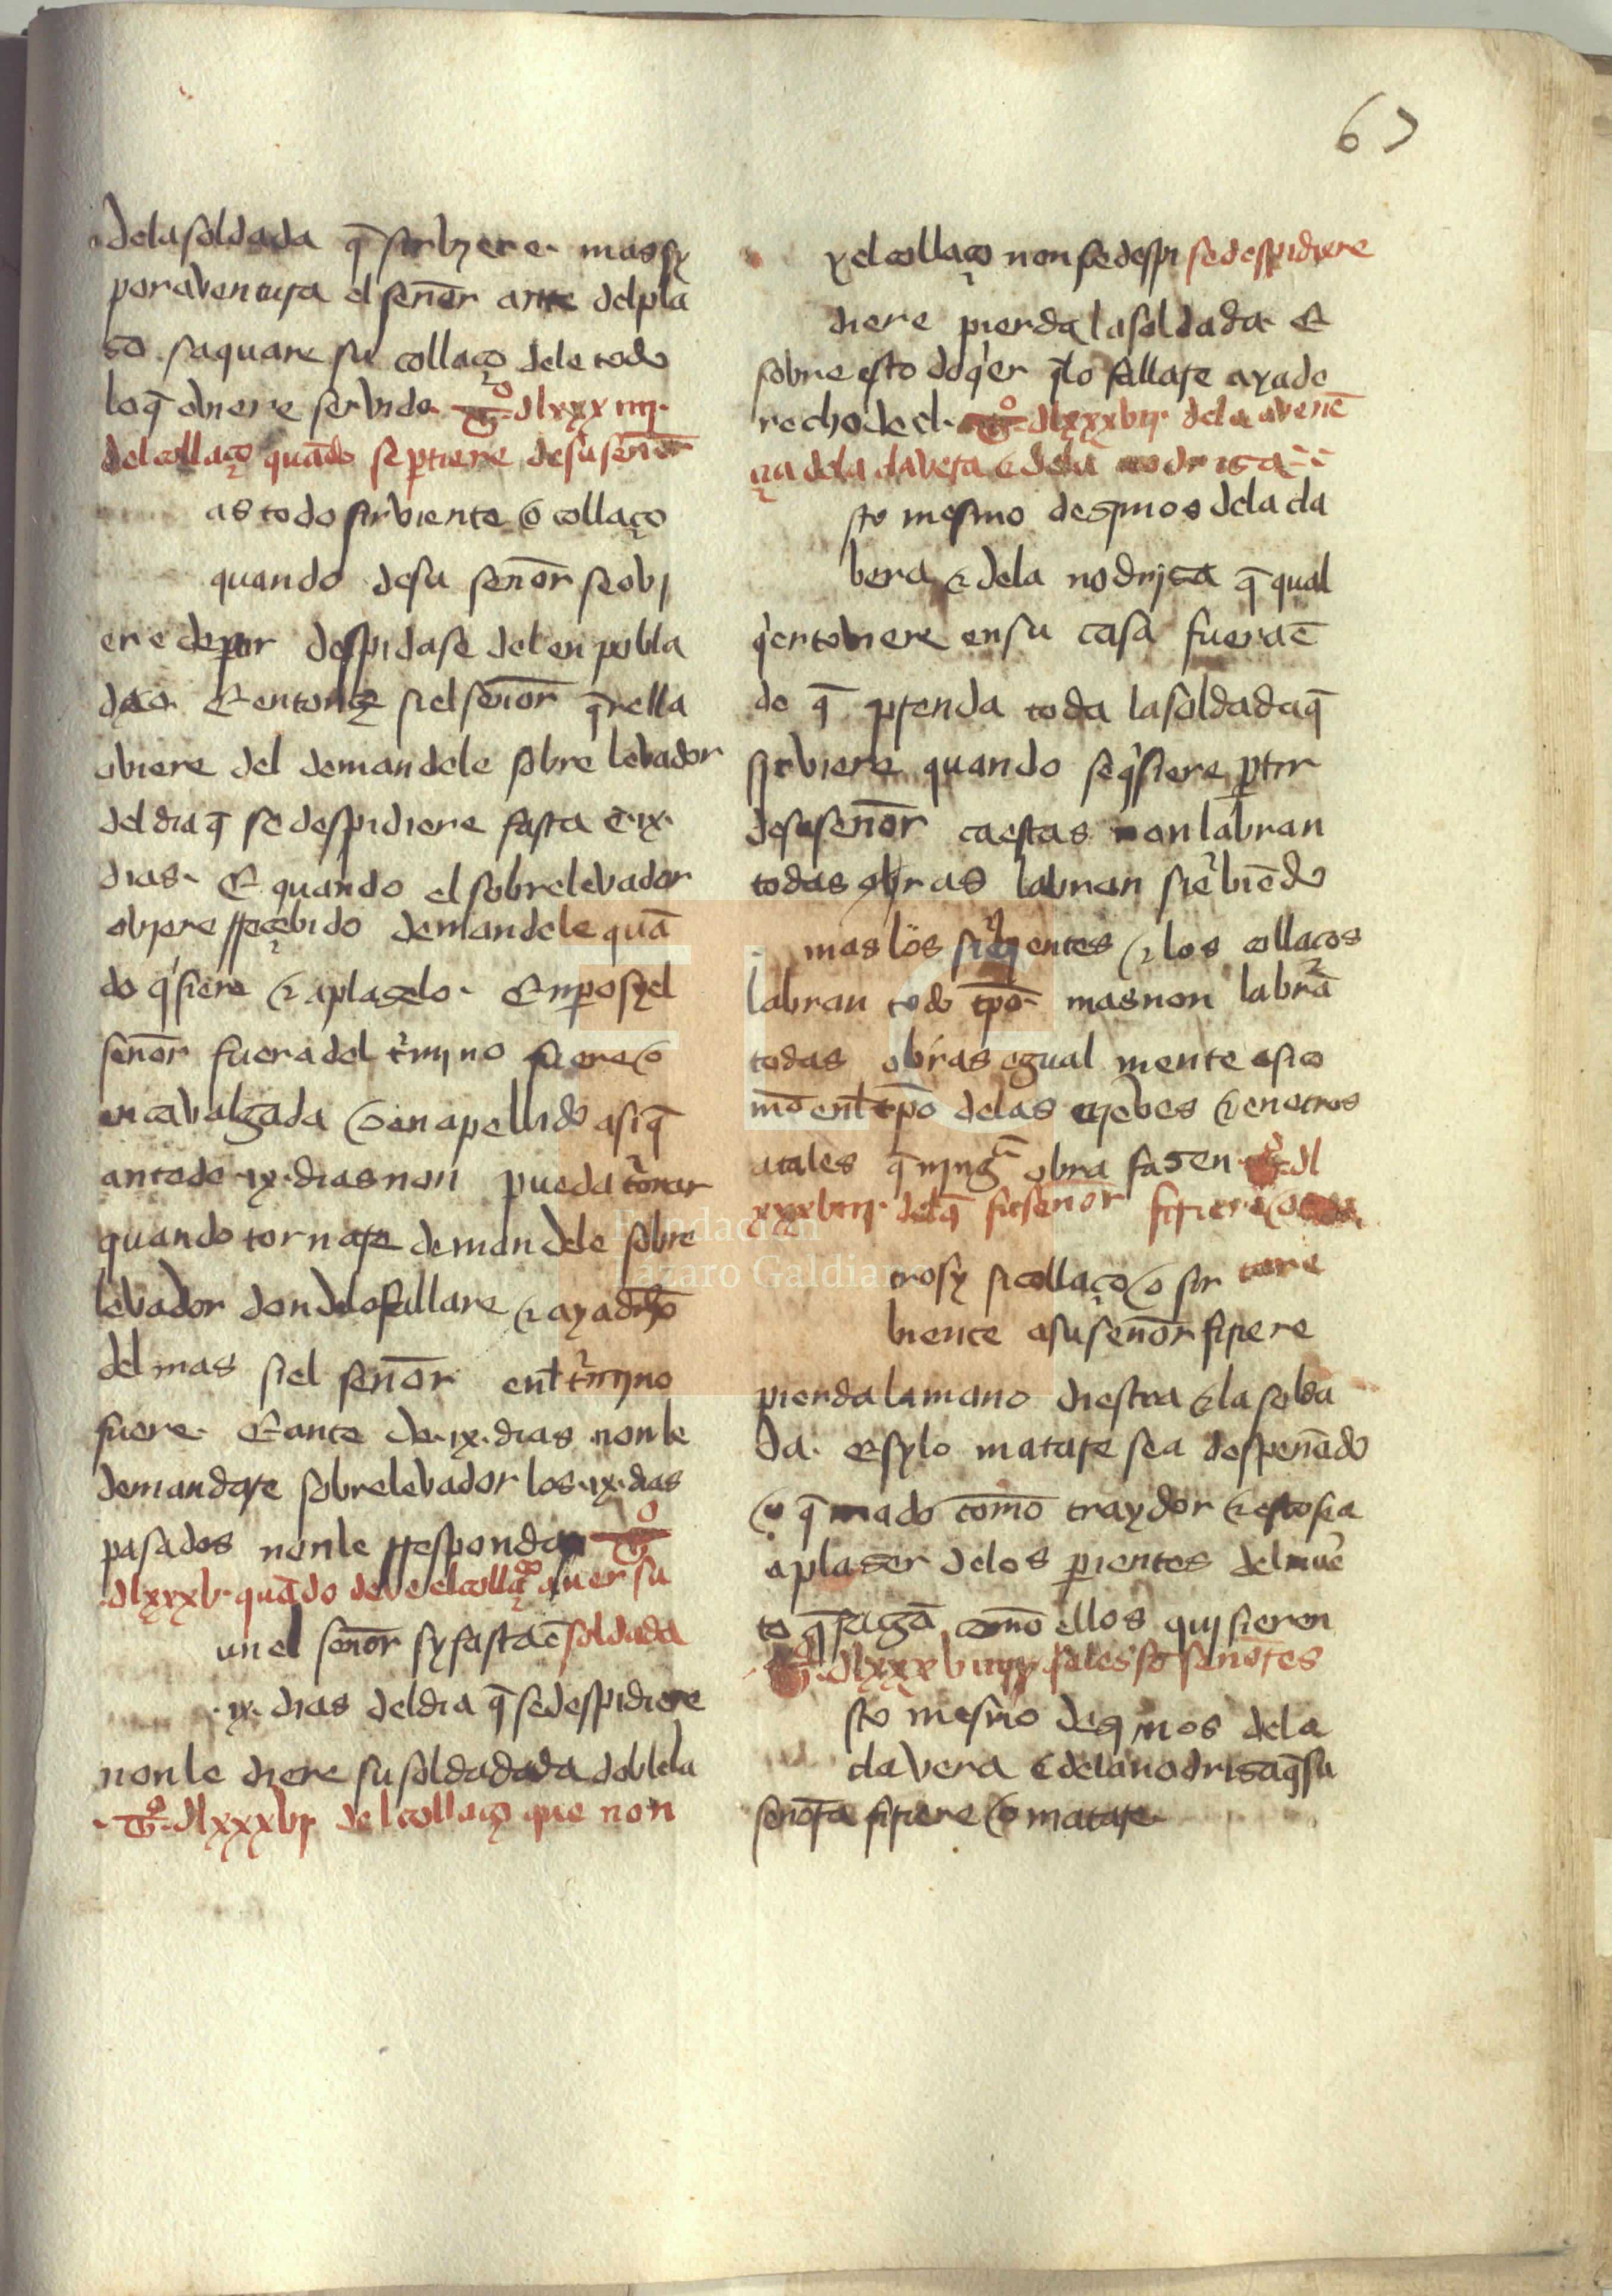 67
dela soldada q̃ sirbyere· mas sy
por aventura el señor ante del pla
so saquare su collaço dele todo
lo q̃ oviere servido· tº· dlxxxiiij·
del collaço quãdo se ptiere de su señor
as todo sirviente o collaço
quando de su señor se obi
ere de ptir despidase del en pobla
do· Et entonçe si el señor q̃rella
oviere del demandele sobre levador
del dia q̃ se despidiere fasta ẽ ·ix·
dias· Et quando el sobrelevador
obyere rreçebido demandele quã
do q̃siere & aplaselo· Enpo sy el
señor fuera del t̃mjno fuere o
en cavalgada o en apellido asi q̃
ante de ·ix· dias non pueda tornar
quando tornare demandele sobre
levador dondelo fallare & aya dr̃cho
del mas si el señor enl t̃mjno
fuere· Et ante de ·ix· dias nonle
demandare sobrelevador los ·ix· dias
pasados nonle rresponda tº
·dlxxxv· quãdo deve el collaço aver su
un el señor sy fasta ẽ soldada
·ix· dias del dia q̃ se despidiere
nonle diere su soldadada doblela
·tº· dlxxxvj del collaço que non
y el collaço non se despi se despidiere
diere pierda la soldada· Et
sobre esto do q̃er q̃lo fallare aya de
recho de el· tº dlxxxvij· dela avenẽ
çia dela clavera & dela nodrisa
sto mesmo desimos dela cla
bera & dela nodrisa q̃ qual
q̃er toviere en su casa fuera ẽ
de q̃ prenda toda la soldada q̃
sirviere quando se q̃siere ptir
de su señor ca estas non labran
todas obras labran sirbiẽdo
mas los sirvientes & los collaços
labran todo tp̃o· mas non labrã
todas obras egual mente asi co
mo enl tp̃o delas njebes & en otros
atales q̃ ningã obra fasen· tº· dl
xxxviij· del q̃ su señor firiere o
trosy si collaço o sir tare
viente a su señor firiere
pierda la mano diestra & la solda
da· Et sylo matare sea despeñado
o q̃mado como traydor & esto sea
a plaser delos parientes del muẽ
to q̃ fagã como ellos quisieren
tº· dlxxxviiij
sto mesmo desimos dela
clavera & dela nodrisa q̃ su
señora firiere o matare·
Fundación
Lázaro Galdiano